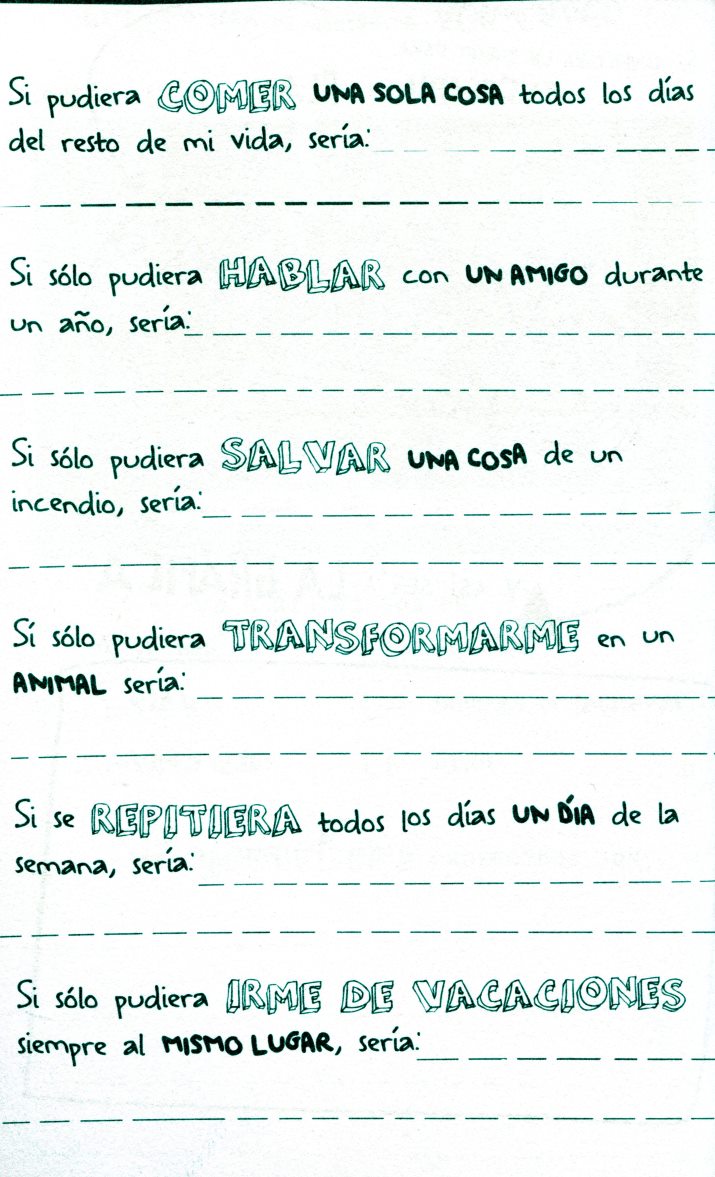 Si pudiera COMER UNA SOLA COSA todos los días
del resto de mi vida, sería:
Si sólo pudiera HABLAR con UN AMIGO durante
un año, sería:
Si sólo pudiera SALVAR UNA COSA de un
incendio, sería:
Sí sólo pudiera TRANSFORMARME en un
ANIMAL sería:
Si se REPITIERA todos los días UN DÍA de la
semana, sería:
Si sólo pudiera IRME DE VACACIONES
siempre al MISMO LUGAR, sería: